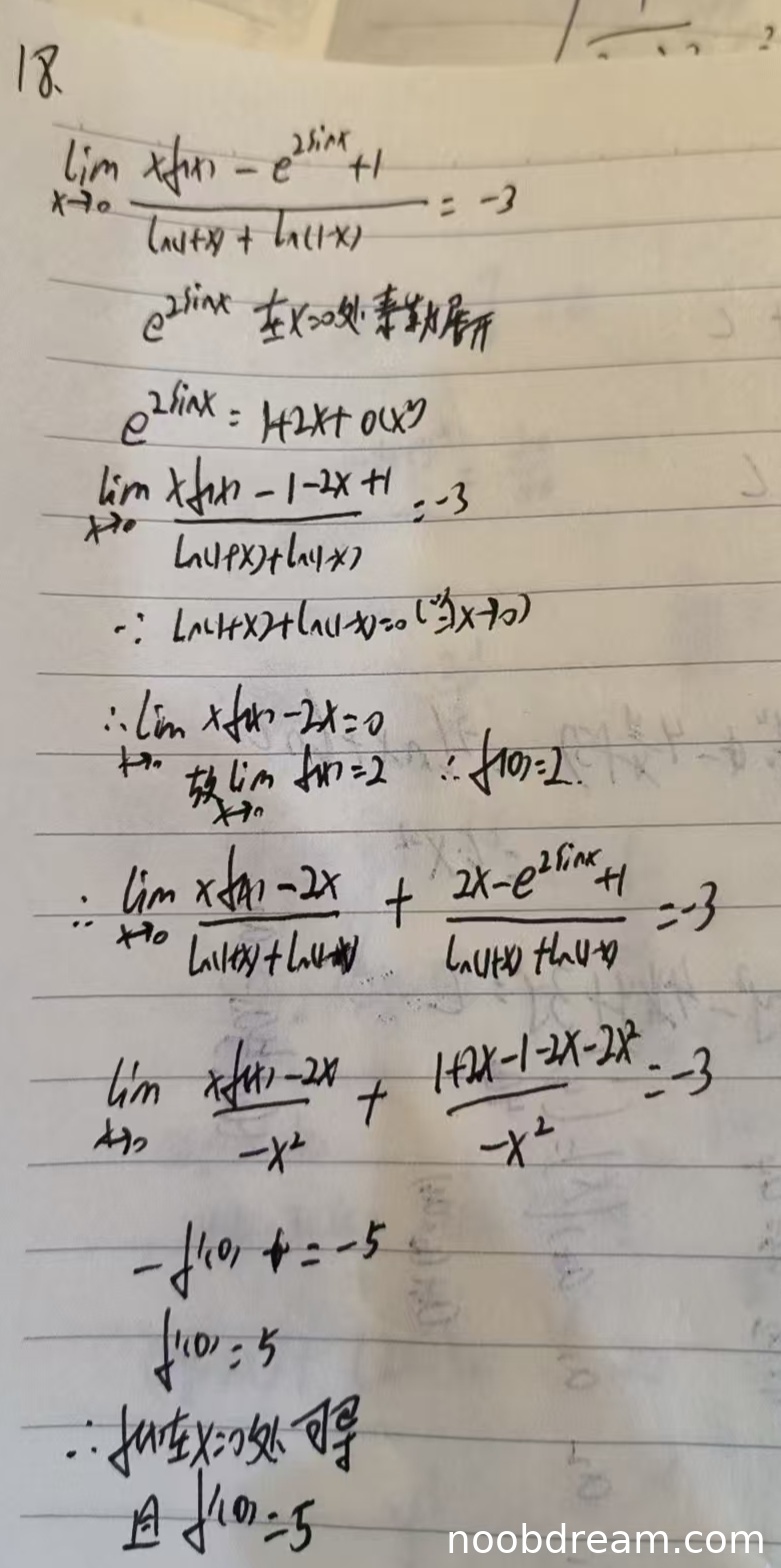 18.
lim x→0 (xf(x) - e^{2sinx} + 1) / (ln(1+x) + ln(1-x)) = -3
e^{2sinx} 在x=0处泰勒展开
e^{2sinx} = 1+2x+o(x)
lim x→0 (xf(x) - 1 - 2x + 1) / (ln(1+x)+ln(1-x)) = -3
∵ ln(1+x)+ln(1-x)=0 (当x→0)
∴ lim x→0 xf(x) - 2x = 0
故 lim x→0 f(x) = 2 ∴ f(0) = 2.
∴ lim x→0 (xf(x) - 2x) / (ln(1+x)+ln(1-x)) + (2x - e^{2sinx} + 1) / (ln(1+x)+ln(1-x)) = -3
lim x→0 (xf(x) - 2x) / (-x²) + (1+2x-1-2x-2x²) / (-x²) = -3
-f'(0) = -5
f'(0) = 5
∴ f(x)在x=0处可导
且 f'(0) = 5
noobdream.com